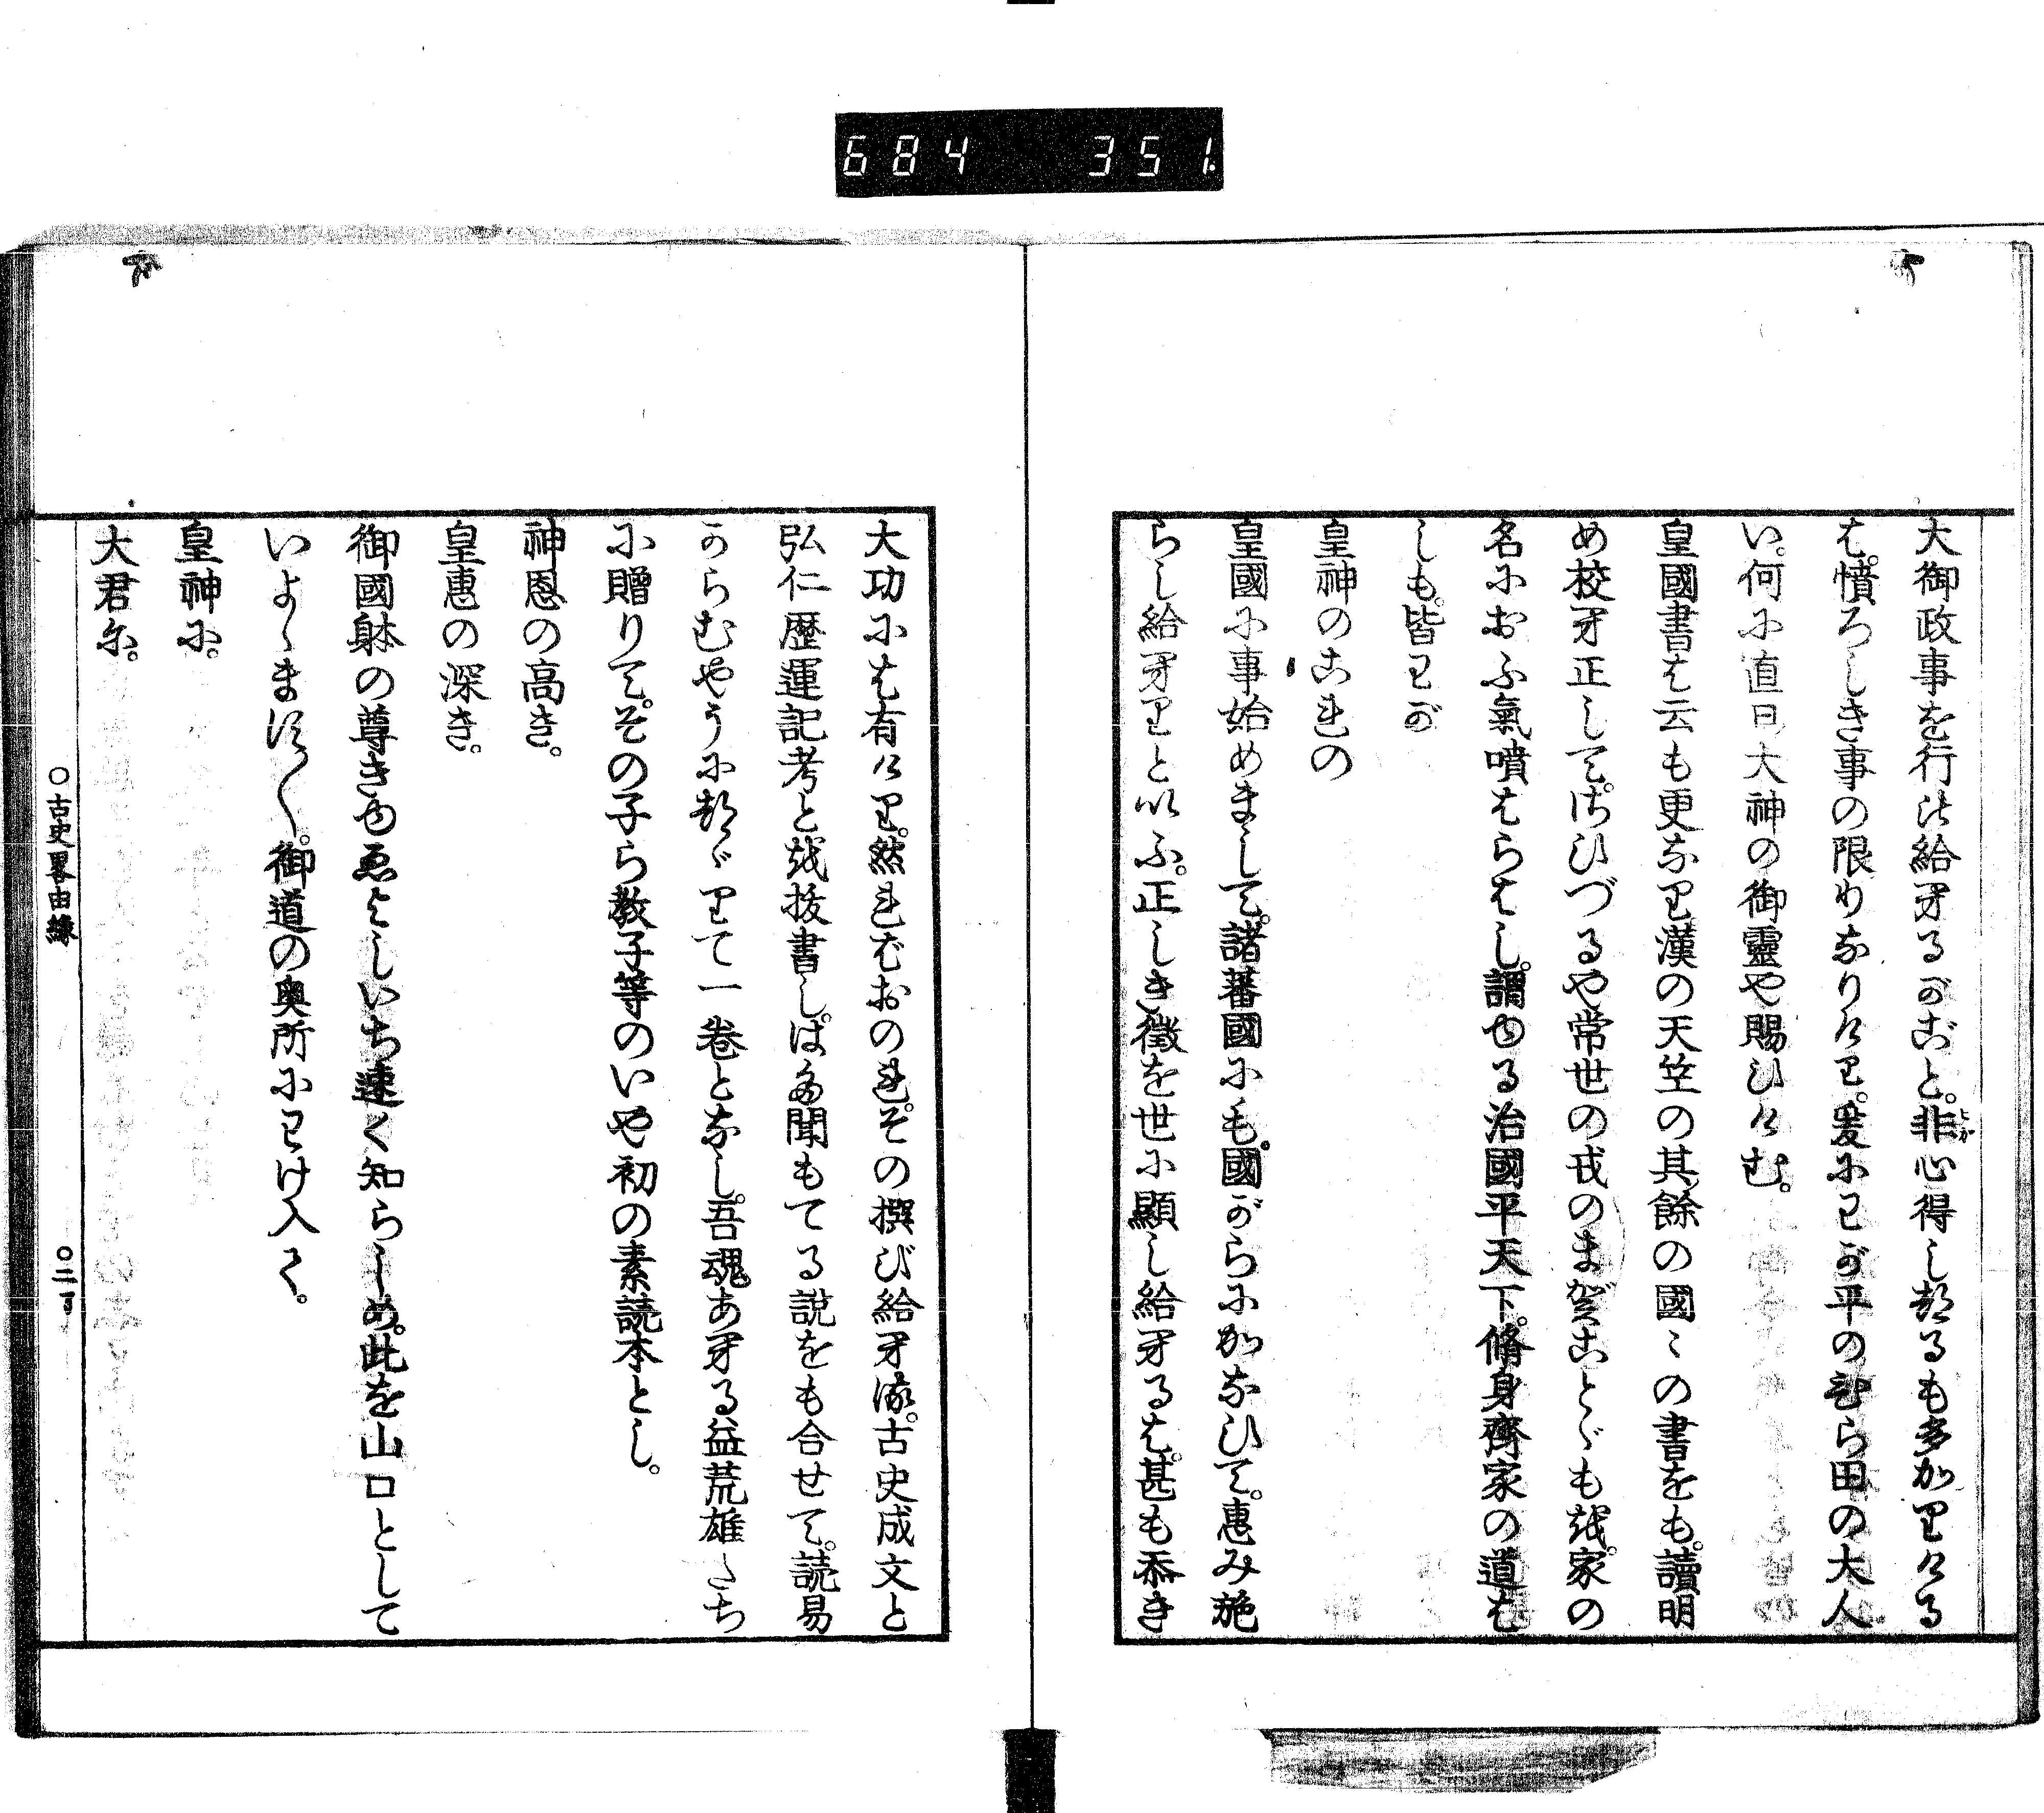 684 351
大御政事を行はせ給牙るがごと。非心得し都るも多かりける
は。憤ろしき事の限りなりけり。爰にわが平のむら田の大人
い。何に直日大神の御靈や賜ひけむ。
皇國書は云も更なり漢の天竺の其餘の國〻の書をも。讀明
め校牙正して。さひづるや常世の戎のまがことゞも越。家の
名におふ氣噴はらはし。謂ゆる治國平天下。脩身齊家の道は
しも。皆わが
皇神のこれの
皇國に事始めまして。諸蕃國にも。國がらにかなひて。惠み施
らし給牙りと以ふ。正しき徴を世に顯し給牙るは。甚も忝き
大功には有けり。然ればおのれ。その撰び給牙流。古史成文と
弘仁歴運記考と越抜書し。はた聞もてる説をも合せて。読易
からむやうに都ゞりて一卷となし。吾魂あ牙る益荒雄たち
に贈りて。その子ら教子等のいや初の素読本とし。
神恩の高き。
皇惠の深き。
御國躰の尊きゆゑよしいち速く知らしめ。此を山口として
いよゝますく。御道の奥所にわけ入て。
皇神に。
大君尓。
○古史畧由縁
○二丁
とが